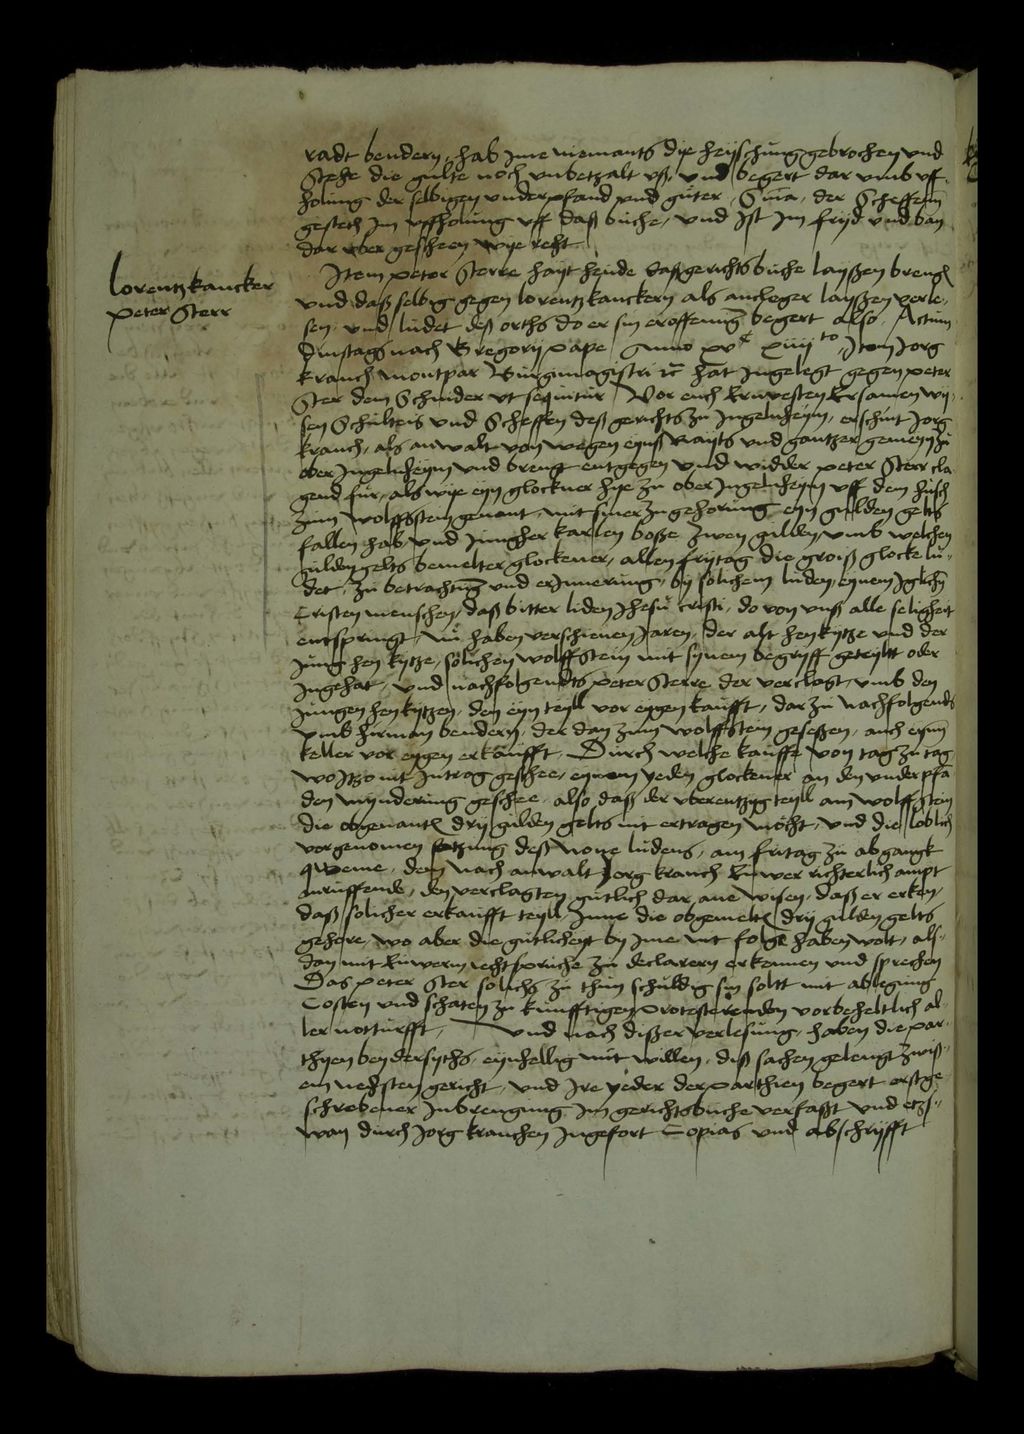 radt bendern, hab ime niemants die heisschung gebrochen und
stehe die gulte noch unbetzalt uß, und begert dar umb uff
holung der selbigen underpfand und guter, der Scheffenn
gesteth im uffholung uff daß buche, und ist im fryd und ban
dar uber gescheen wye reht
lorentz kancker
peter Sterr
Item peter Sterre hayt heude daß gerichts buche layßen brengen
und daß selbig gegen lorentz kanckern als ancleger layßen verle-
sen, und ludet deß orths do er sin eroffenung begert also Actum
Dinstags nach Gregorij pape Anno xvc xiiijto, Item Jorg
kranch montpar Burgimagistri rc hat ingelegt gegen peter
Ster dem Schnider ut sequitur Vor euch Ernvesten Ersamen wy-
sen Schulteis und Scheffen deß gerichts zu Ingelnheym, erschint Jorg
kranch, als anwalt von wegen eynß rayts und gantzer gemeyn zu
ober Ingelnheym und brengt entgegen und widder peter Sterr cla
gend fur, als wye eyn glockner hye zu ober Ingelnheym uff dem husch
zum wolffsteyn genant, mit siner zugehorung eyn gulden gelts
fallen hab, und jungher karlen boße zwen gulden, umb welchen
gulden gelts bemelter glockener, allen frytag die groiß glocke lu-
det, zu betrachtung und erinnerung, by solichem luden eynem iglichen
Cristen menschen, daß bitter liden Jhesu cristi, do von unß alle seligheit
entspringt, Nu haben verschienen Jaren, der alt hen kytze und der
jung hen kytze, solichen wolffstein mit synem begryff geteyltt oder
ingehat, und nachfolgendts peter Sterre der verclagt, umb den
jungen hen kytzen, den eyn teyll vor eygen kaufft, dar zu nachfolgends
umb herman bendern, der dan zum wolffstein geseßen, auch eynn
keller vor eygen erkaufft, Durch welche kauffe von tag zu tag
wo itzo nit intrag geschee, eynem yeden glockener an den underpfan
den mynderung geschee, also daß der uberentzig teyll am wolffstein
die obgenanten dry gulden gelts nit ertragen moht, und die loblich
vorgenomen satzung deß None ludens, am fritag zu abgangk
qweme, dem nach anwalt Jorg kranch Euwer richterlich ampt
anruffende, den verclagten gutlich dar ane wisen, daß er erken,
daß solicher erkaufft teyll, inne die obgemelten dry gulden gelts
gehore, wo aber die gutlicheit by ime nit folge haben wolt, als-
dan mit Euwerm rechtspruche zu declarern erkennen und sprechen
Das peter Ster solichs zu thun schuldig sin soltt mit ablegung
Costen und schaden zu kunfftigen Protesterenden vorbeheltlich al-
ler notturfft, Und nach dißer verlesung, haben die par-
thyen beydersyths, eynhellig mit willen, diß sachen gelengt zwiß-
en nehsten gericht, und ire yeder der parthien begert erstge
schrebener inbrengung im gerichts buche verfaßt und etzs-
wan durch Jorg kranchen ingefort Copias und abschrifft